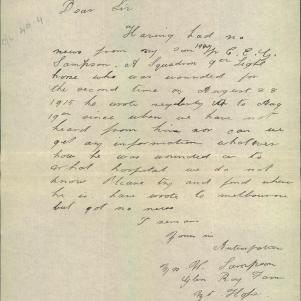 Dear Sir
Having had no
news from my son Tpr C. E. G.
Sampson. A Squadron 9th Light
horse who was wounded for
the second time on August 28
1915 he wrote regularly up to Aug
19th since when we have not
heard from him nor can we
get any information whatever
how he was wounded or to
what hospital we do not
know Please try and find where
he is. have wrote to melbourne
but got no news
I remain
Yours in
Anticipation
Mrs W. Sampson
Glen Roy Farm
Mt Hope